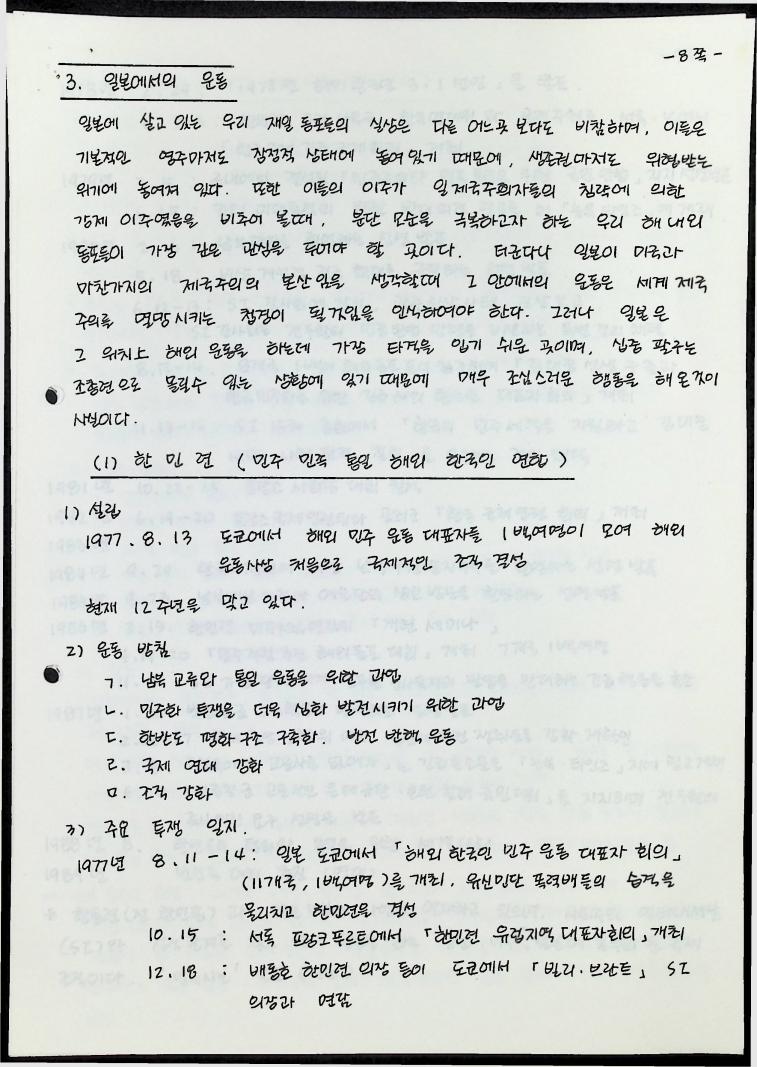 -8쪽-
3. 일본에서의 운동
일본에 살고 있는 우리 재일 동포들의 실상은 다른 어느곳 보다도 비참하며, 이들은
기본적인 영주마저도 잠정적 상태에 놓여 있기 때문에, 생존권마저도 위협받는
위기에 놓여져 있다. 또한 이들의 이주가 일제국주의자들의 침략에 의한
강제 이주였음을 비추어 볼때, 분단 모순을 극복하고자 하는 우리 해내외
동포들이 가장 깊은 관심을 두어야 할 곳이다. 더군다나 일본이 미국과
마찬가지의 제국주의의 본산임을 생각할때 그 안에서의 운동은 세계 제국
주의를 멸망시키는 첩경이 될거임을 인식하여야 한다. 그러나 일본은
그 위치상 해외 운동을 하는데 가장 타격을 입기 쉬운 곳이며, 십중 팔구는
조총련으로 몰릴수 있는 상황에 있기 때문에 매우 조심스러운 행동을 해온것이
사실이다.
(1) 한민련 (민주 민족 통일 해외 한국인 연합)
1) 설립
1977.8.13 도쿄에서 해외 민주 운동 대표자들 1백여명이 모여 해외
운동사상 처음으로 국제적인 조직 결성
현재 12주년을 맞고 있다.
2) 운동 방침
ㄱ. 남북 교류와 통일 운동을 위한 과업
ㄴ. 민주화 투쟁을 더욱 심화 발전시키기 위한 과업
ㄷ. 한반도 평화 구조 구축화. 반전 반핵 운동
ㄹ. 국제 연대 강화
ㅁ. 조직 강화
3) 주요 투쟁 일지.
1977년 8.11-14: 일본 도쿄에서 「해외 한국인 민주 운동 대표자 회의」
(11개국, 1백여명)를 개최. 유신민단 폭력배들의 습격을
물리치고 한민련을 결성
10.15 : 서독 프랑크푸르트에서 「한민련 유럽지역 대표자회의」개최
12.18 : 배동호 한민련 의장 등이 도쿄에서 「빌리·브란트」 SI
의장과 면담